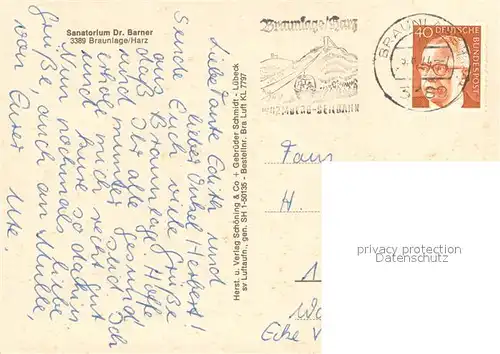 Sanatorium Dr. Barner
3389 Braunlage/Harz
Liebe Tante Edith und
lieber Onkel Herbert!
Sende Euch viele Grüße
aus Braunlage. Hoffe
daß Ihr alle gesund
und munter seid. Ich
erhole mich recht gut
hier
Nun nochmals liebe
Grüße auch an
von Eurer
Ute.
Herst. u. Verlag Schöning & Co + Gebrüder Schmidt - Lübeck
sv Luftaufn., gen. SH 1-50135 - Bestellnr. Bra Luft KL 7797
Braunlage/Harz
WURMBERG-SEILBAHN
BRAUNLAGE
40 DEUTSCHE
BUNDESPOST
Fam
H.
1
Ecke
privacy protection
watermark